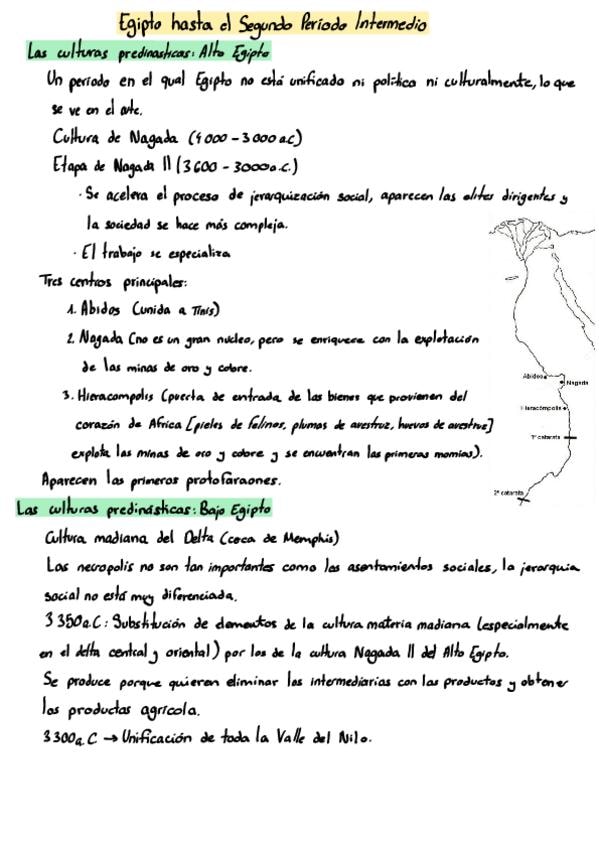 Egipto hasta el Segundo Período Intermedio
Las culturas predinásticas: Alto Egipto
Un período en el qual Egipto no está unificado ni política ni culturalmente, lo que
se ve en el arte.
Cultura de Nagada (4000 - 3000 a.C)
Etapa de Nagada II (3600 - 3000 a.C.)
· Se acelera el proceso de jerarquización social, aparecen las elites dirigentes y
la sociedad se hace más compleja.
· El trabajo se especializa
Tres centros principales:
1. Abidos (unida a Tinis)
2. Nagada (no es un gran nucleo, pero se enriquece con la explotación
de las minas de oro y cobre.
3. Hieracompolis (puerta de entrada de los bienes que provienen del
corazón de Africa [pieles de felinos, plumas de avestruz, huevos de avestruz]
explota las minas de oro y cobre y se encuentran las primeras momias).
Aparecen los primeros protofaraones.
Abidos
Nagada
Hieracómpolis
1ª catarata
2ª catarata
Las culturas predinásticas: Bajo Egipto
Cultura madiana del Delta (cerca de Memphis)
Las necropolis no son tan importantes como los asentamientos sociales, la jerarquia
social no está muy diferenciada.
3350a.C: Substitución de elementos de la cultura materia madiana (especialmente
en el delta central y oriental) por los de la cultura Nagada II del Alto Egipto.
Se produce porque quieren eliminar los intermediarios con los productos y obtener
los productos agrícola.
3300a.C → Unificación de toda la Valle del Nilo.